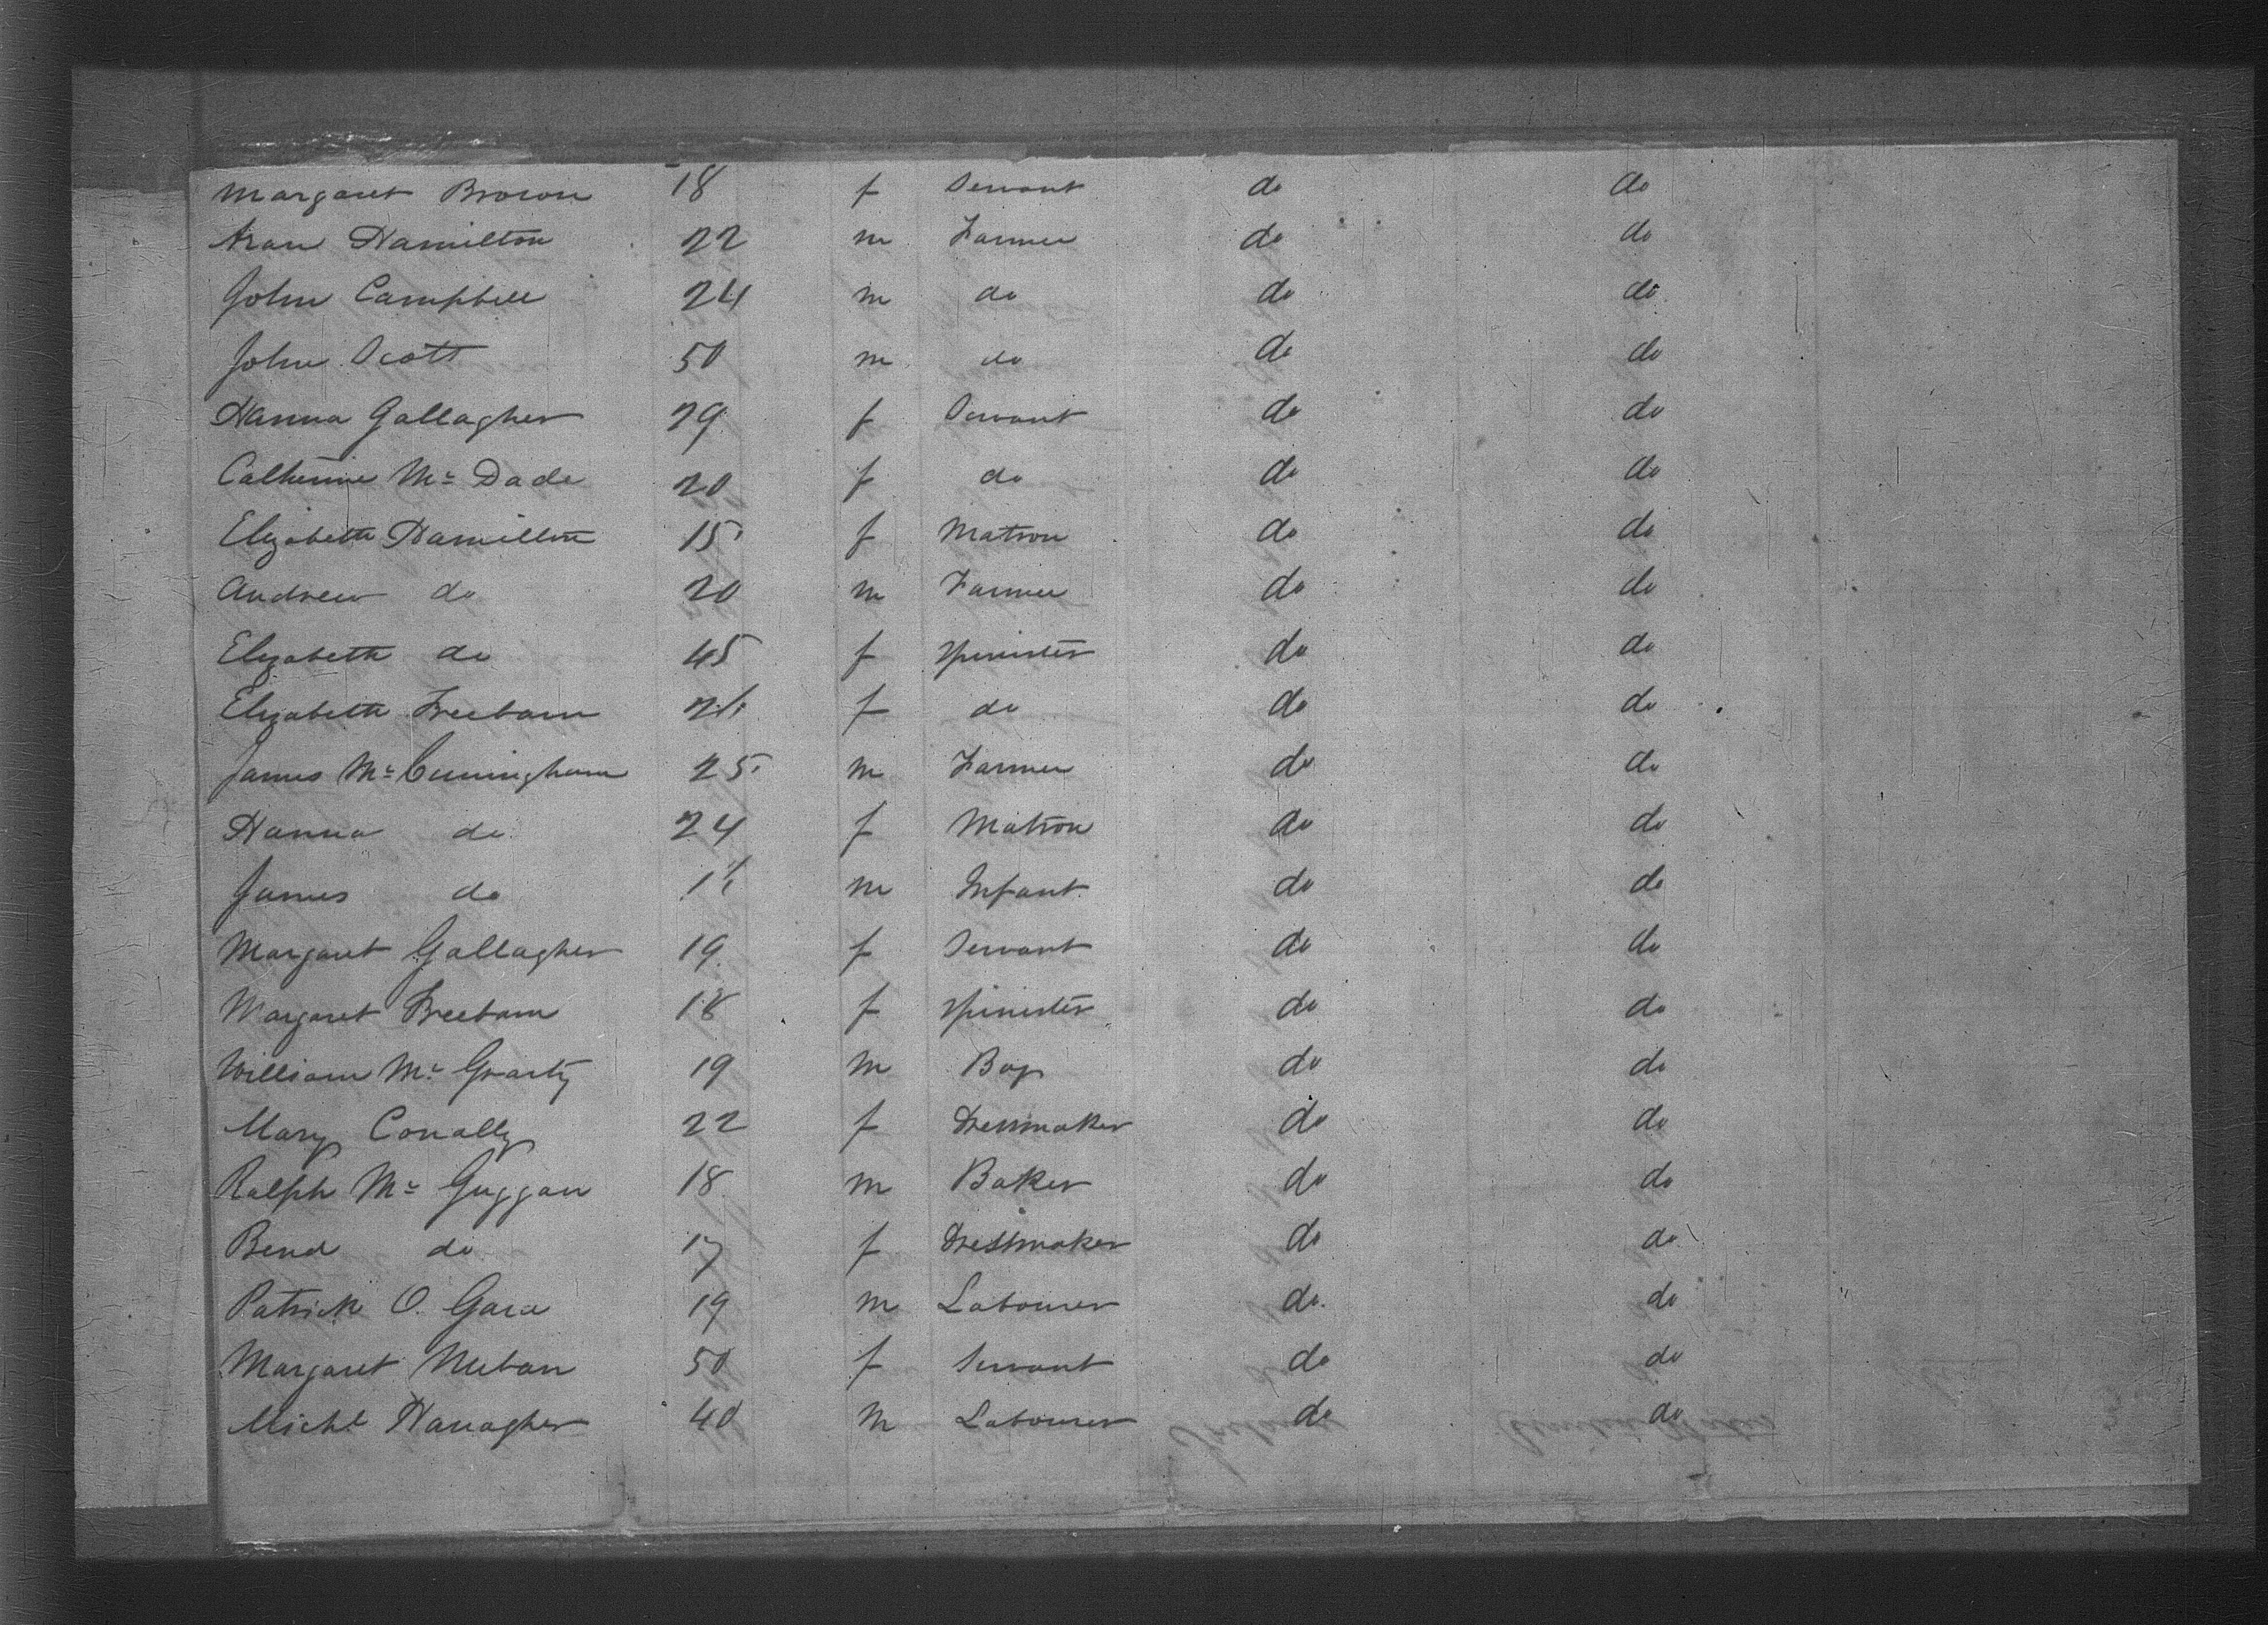 Margaret Brown 18 f Servant do do
Hamilton 22 m Farmer do do
John Campbell 24 m do do do
John Scott 50 m do do do
Hanna Gallagher 29 f Servant do do
Catherine Mc Dade 20 f do do do
Elizabeth Hamilton 15 f Matron do do
Andrew do 20 m Farmer do do
Elizabeth do 45 f Spinister do do
Elizabeth Freeban f do do do
James Mc Cuningham 25 m Farmer do do
Hanna do 24 f Matron do do
James do m Infant do do
Margaret Gallagher 19 f Servant do do
Margaret Freeban 18 f Spinister do do
William Mc 19 m Boy do do
Mary Conally 22 f Dressmaker do do
Ralph Mc Guggan 18 m Baker do do
do 17 f Dressmaker do do
Patrick O. Gara 19 m Labourer do do
Margaret 50 f Servant do do
Michl Hanagher 40 m Labourer do do